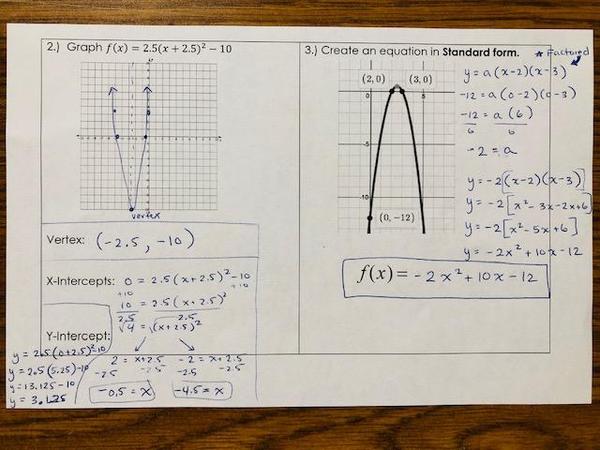 2.) Graph f(x) = 2.5(x + 2.5)² − 10
vertex
Vertex: (-2.5, -10)
X-Intercepts: 0 = 2.5(x+2.5)²-10
+10 +10
10 = 2.5(x+2.5)²
2.5 2.5
√4 = √(x+2.5)²
2 = x+2.5 -2 = x+2.5
-2.5 -2.5 -2.5 -2.5
-0.5 = x -4.5 = x
Y-Intercept:
y = 2.5(0+2.5)²-10
y = 2.5(5.25)-10
y = 13.125-10
y = 3.125
3.) Create an equation in Standard form. * Factored
(2, 0) (3, 0)
0 5
-5
-10
(0, −12)
y = a(x-2)(x-3)
-12 = a(0-2)(0-3)
-12 = a(6)
6 6
-2 = a
y = -2[(x-2)(x-3)]
y = -2[x²-3x-2x+6]
y = -2[x²-5x+6]
y = -2x²+10x-12
f(x) = -2x²+10x-12